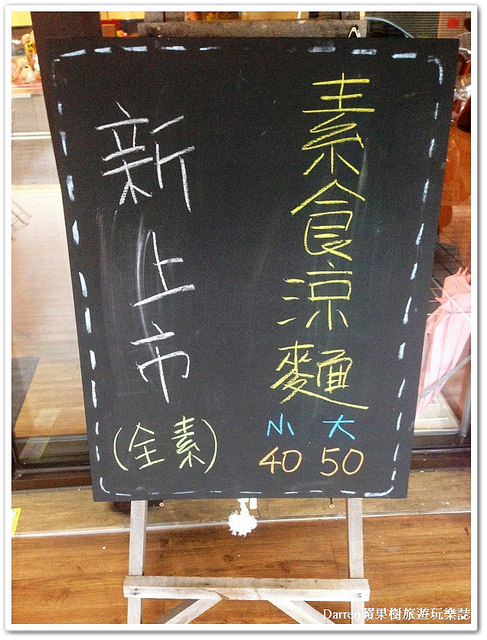 素食涼麵
小 大
40 50
新上市
(全素)
Darren蘋果樹旅遊玩樂誌